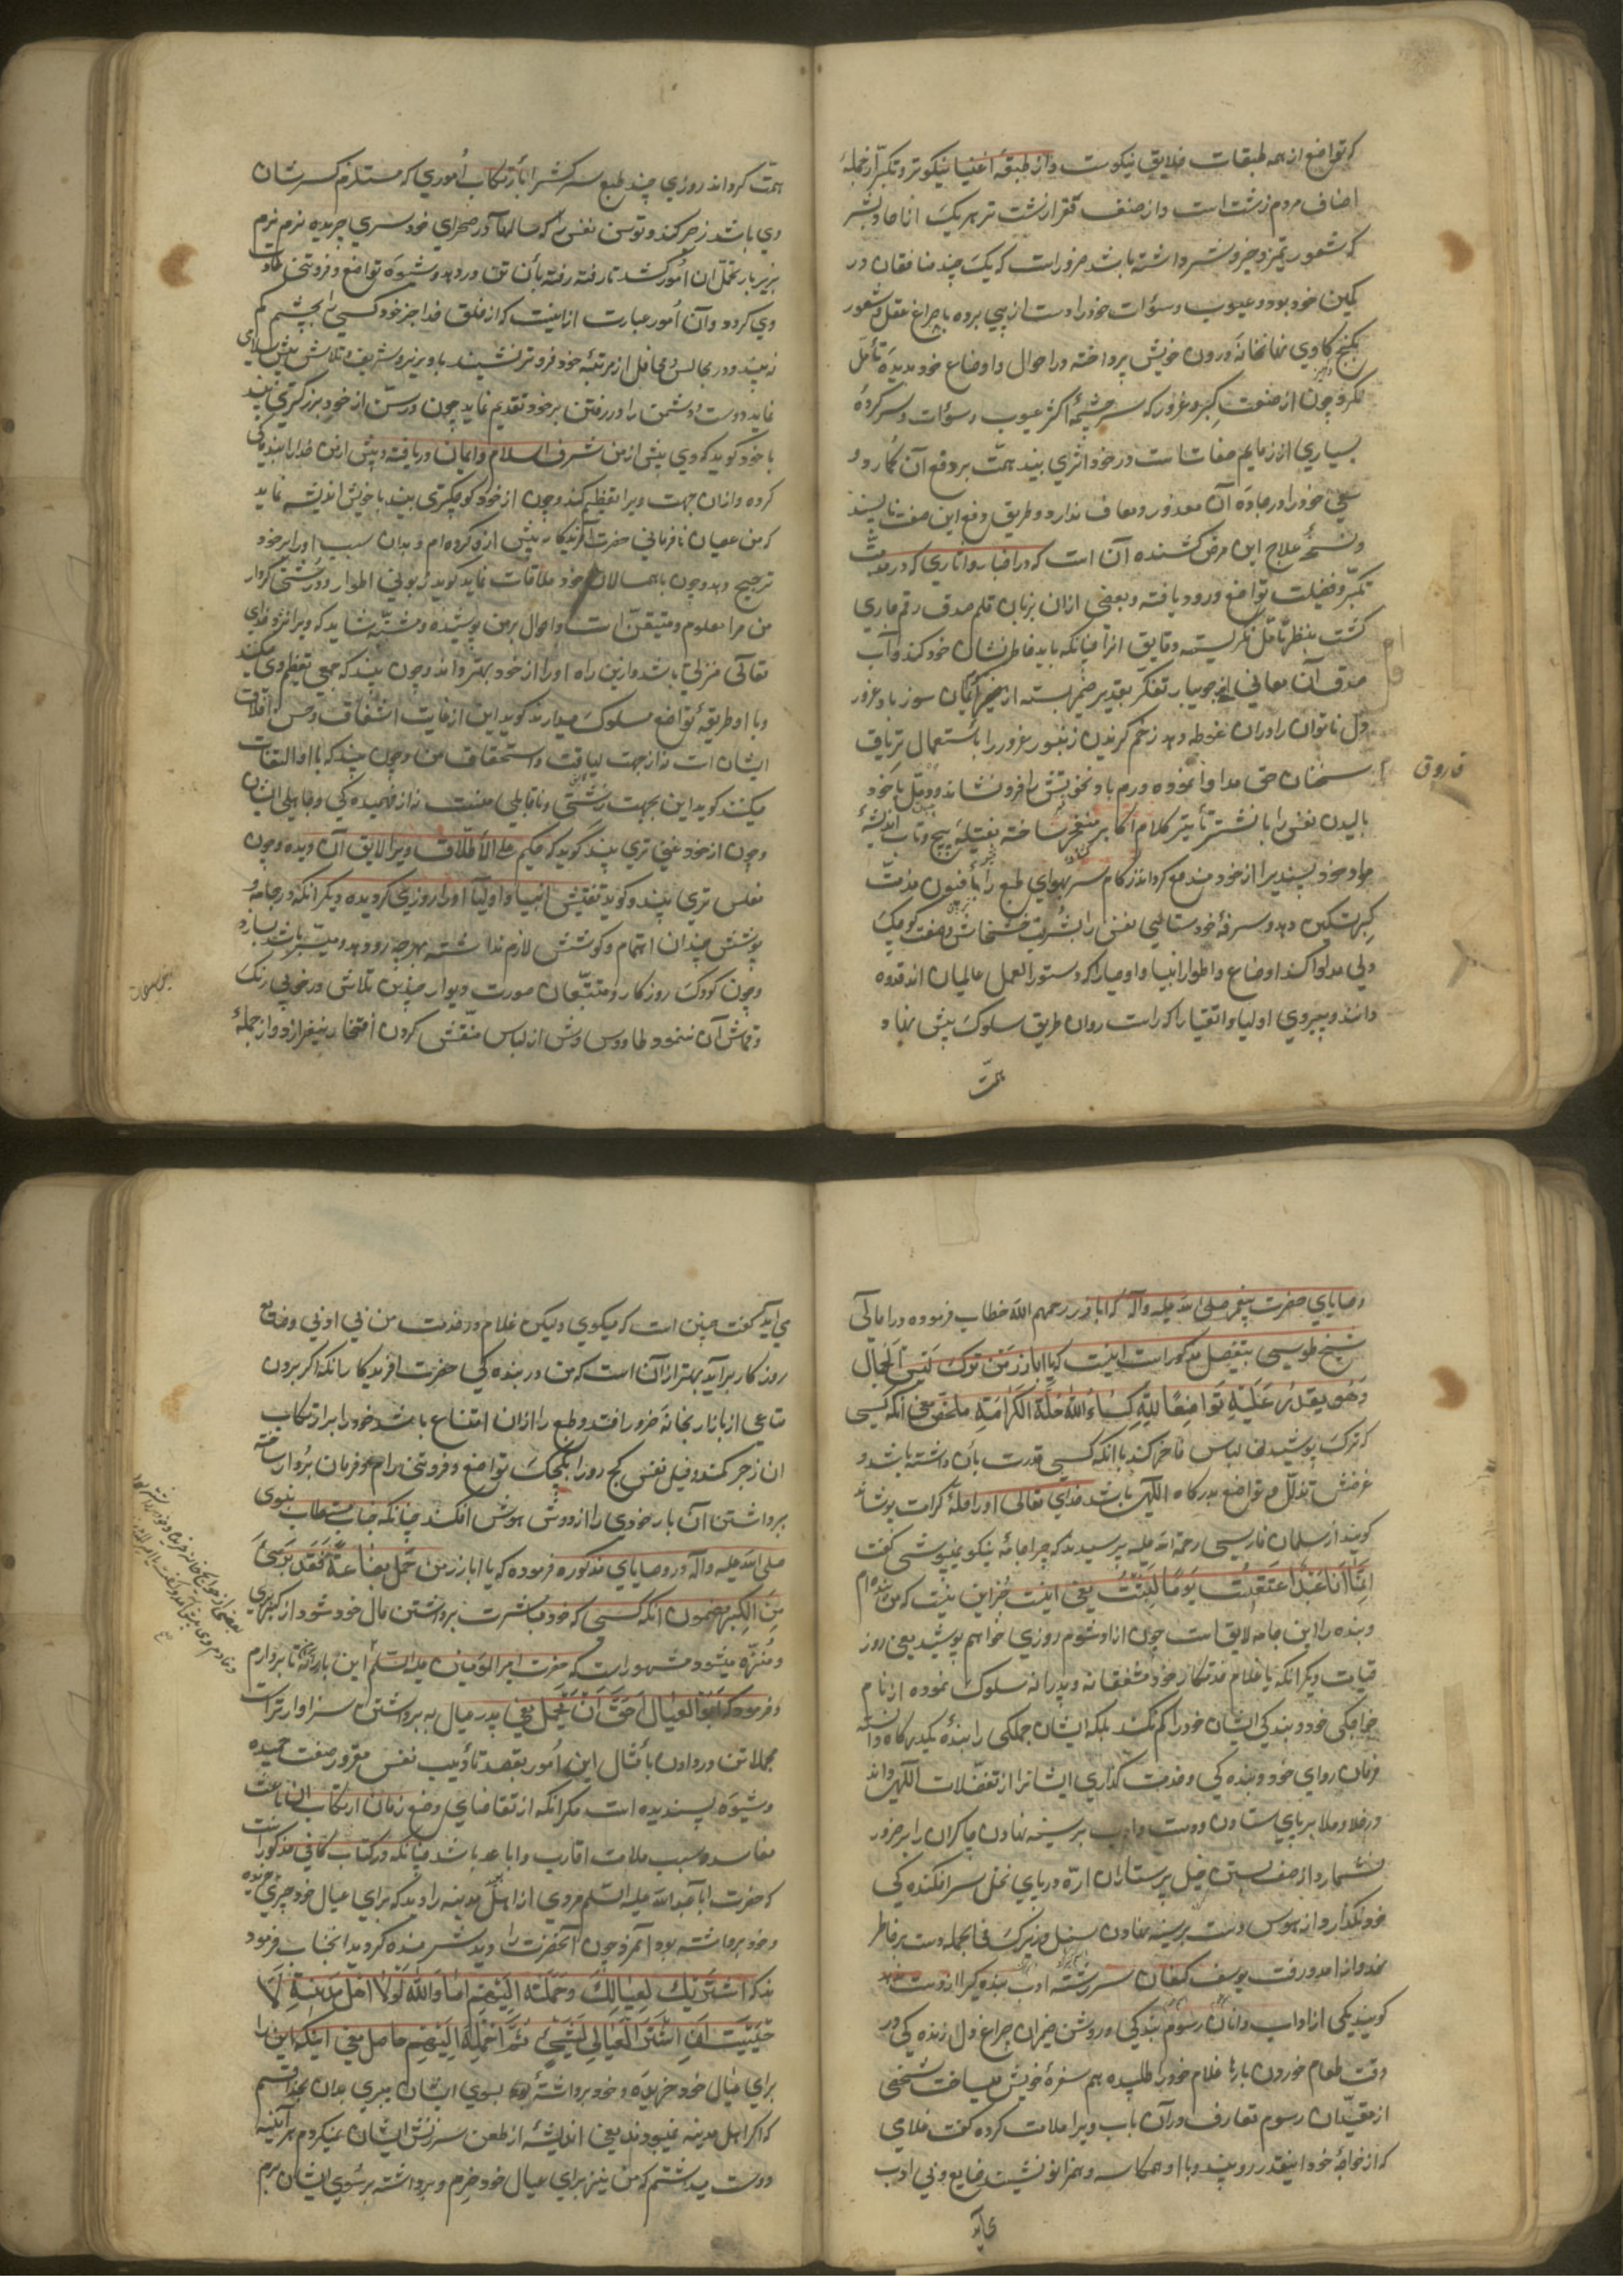 که تواضع از همه طبقات خلایق نیکوست و از طبقهٔ اغنیا نیکوتر و تکبر از جملهٔ
اصناف مردم زشت است و از صنف فقرا زشت تر هر یک از احاد بشر
که شعور تمیز خیر و شر داشته باشد ضرور است که یک چند منافقان در
کمین خود بود و عیوب و سوآت خود را دست از پی برده با چراغ عقل و شعور
بکنج کاوی نهانخانهٔ درون خویش پرداخته در احوال و اوضاع خود بدیدهٔ تأمل
نگرد و چون از صفت کبر و غرور که سرچشمهٔ اکثر عیوب و سوآت و سرکردهٔ
بسیاری از ذمایم صفات است در خود اثری بیند همت بر دفع آن گمارد و
سعی خود را در جادهٔ آن معذور و معاف ندارد و طریق دفع این صفت ناپسند
و نسخهٔ علاج این مرض کشنده آن است که در اخبار و آثاری که در مذمت
تکبر و فضیلت تواضع ورود یافته و بعضی از آن بزبان قلم صدق رقم جاری
گشت بنظر تأمل نگریسته دقایق آنرا چنانکه باید خاطرنشان خود کند و آب
صدق آن معانی از جویبار تفکر بقدیر ضمیر بسته از سوز باد غرور
دل ناتوان را در آن غوطه دهد زخم گزیدن زنبور غرور را باستعمال تریاق
فاروق
سخنان حق مداوا نموده ورم باد نخوتش را فرو نشاند و دمل با خود
بالیدن نفس را با نشتر تأثیر کلام اکابر منفجر ساخته بفتیلهٔ پیچ و تاب اندیشه
مواد خود پسندیرا از خود مندفع گرداند زکام سر بهوای طبع را بافیون مذمت
کبر تسکین دهد و سرفهٔ خودستایی نفس را بشربت خشخاش صفت کوچک
دلی مداوا کند اوضاع و اطوار انبیا و اوصیا را که دستور العمل عالمیان اند قدوه
دانند و پیروی اولیا و اتقیا را که راست روان طریق سلوک پیش نهاد
همت
همت گرداند روزی چند طبع سرکش را بارتکاب اموری که مستلزم کسر شان
وی باشد زجر کند و توسن نفس را که سالها در صحرای خودسری چریده نرم نرم
بزیر بار تحمل آن امور کشد تا رفته رفته بآن تن در دهد و شیوهٔ تواضع و فروتنی عادت
وی گردد و آن امور عبارت از اینست که از خلق خدا جز خود کسی را بچشم کم
نه بیند و در مجالس و محافل از مرتبهٔ خود فروتر نشیند با وزیر و شریف تلاش پیش سلامی
نماید دوست و دشمن را در رفتن بر خود تقدیم نماید چون در سن از خود بزرگتری بیند
با خود گوید که وی پیش از من شرف اسلام و ایمان دریافته و پیش از من خدا را بندگی
کرده و از آن جهت ویرا تعظیم کند و چون از خود کوچکتری بیند با خویش اندیشه نماید
که من عصیان و نافرمانی حضرت آفریدگار بیش از او کرده ام و بدان سبب او را بر خود
ترجیح دهد و چون با همسالان خود ملاقات نماید گوید زبونی اطوار و زشتی کردار
من مرا معلوم و متیقن است و احوال بر من پوشیده و مشتبه شاید که ویرا نزد خدای
تعالی منزلتی باشد و از این راه او را از خود بهتر داند و چون بیند که جمعی تعظیم وی میکنند
و با او طریقهٔ تواضع مسلوک میدارند گوید این از غایت اشفاق و حسن اخلاق
ایشان است نه از جهت لیاقت و استحقاق من و چون بیند که با او التفات
میکنند گوید این بجهت زشتی و ناقابلی منست نه از فهمیدگی و جاهلی ایشان
و چون از خود غنی تری بیند گوید که حکیم علی الاطلاق ویرا لایق آن دیده و چون
مفلس تری بیند گوید تفتیش انبیا و اولیا او را روزی گردیده دیگر آنکه در جامه و
پوشش چندان اهتمام و کوشش لازم نداشته بهر چه رو دهد و میسر باشد بسازد
و چون کودک روزگار و متتبعان صورت دیوار چندین تلاش در خوبی رنگ
و قماش آن ننموده طاووس وش از لباس منقش کردن افتخار نیفرازد و از جملهٔ
وصایای حضرت پیغمبر صلی الله علیه وآله که اباذر رحمه الله خطاب فرموده در امالی
شیخ طوسی بتفصیل مذکور است اینست که یا اباذر من ترک لبس الجمال
وهو یقدر علیه تواضعا لله کساه الله حلة الکرامة ملخص معنی آنکه کسی
که ترک پوشیدن لباس فاخر کند با آنکه کسی قدرت بآن داشته باشد و
غرضش تذلل و تواضع بدرگاه اللهی باشد خدای تعالی او را حلهٔ کرامت پوشاند
گویند از سلمان فارسی رحمة الله علیه پرسیدند که چرا جامهٔ نیکو نمیپوشی گفت
انما انا عبد اذا عتقت یوما لبست یعنی اینست جز این نیست که من بنده ام
و بنده را این جامه لایق است چون آزاد شوم روزی خواهم پوشید یعنی روز
قیامت دیگر آنکه با غلام و خدمتکار خود مشفقانه و پدرانه سلوک نموده از نام
خواجگی خود و بندگی ایشان خود را گم نکند بلکه ایشان جملگی را بندهٔ یک درگاه دانسته
فرمان روای خود و بنده گی و خدمت گذاری ایشانرا از تفضلات اللهی داند
در خلا و ملا بر پای ستادن و دست ادب بر سینه نهادن چاکران را بر خود
نشمارد از صف بستن خیل پرستاران اره در پای نخل سرافکنده گی
خود نگذارد از هوس دست بر سینه نهادن فی الجمله دست بر خاطر
نهد و از آمد و رفت یوسف کنعان سررشته ادب بنده گی را از دست ندهد
گویند یکی از ادب دانان رسوم بندگی و روشن ضمیران چراغ دل زنده گی در
وقت طعام خوردن بارها غلام خود را طلبیده هم سفرهٔ خویش میساخت شخصی
از مقیدان رسوم تعارف در آن باب ویرا ملامت کرده گفت غلامی
که از خواجهٔ خود اینقدر رو بیند و با او همکاسه و همزانو نشیند ضایع و بی ادب
می آید
می آید گفت چنین است که میگویی ولیکن غلام در خدمت من بی ادبی و ضایع
روزگار برآید بهتر از آن است که من در بنده گی حضرت آفریدگار آنکه اگر بردن
متاعی از بازار بخانه ضرور افتد و طبع را از آن امتناع باشد خود را بر ارتکاب
آن زجر کند و فیل نفس کج رو را بکجک تواضع و فروتنی رام و فرمان بردار ساخته
برداشتن آن بار خودی را از دوش هوش افکند چنانکه جناب مستطاب نبوی
صلی الله علیه وآله در وصایای مذکوره فرموده که یا اباذر من حمل بضاعة فقد بری
من الکبر مضمون آنکه کسی که خود مباشرت برداشتن مال خود شود از کبر بری
و منزه میشود مشهور است که حضرت امیر المؤمنین علیه السلم این بار را تا بردارم
و فرمود که ابو العیال احق ان یحمل یعنی پدر عیال به برداشتن سزاوارتر است
مجملا تن در دادن بامثال این امور بقصد تأدیب نفس مغرور صفت حمیده
و شیوهٔ پسندیده است مگر آنکه از تقاضای وضع زمان ارتکاب آن باعث
مفاسد و سبب ملامت اقارب و اباعد باشد چنانکه در کتاب کافی مذکور است
که حضرت ابا عبد الله علیه السلم مردی از اهل مدینه را دید که برای عیال خود چیزی خریده
و خود برداشته بود آنمرد چون آنحضرت را دید شرمنده گردید آنجناب فرمود
که اشتریته لعیالک وحملته الیهم اما والله لولا اهل المدینة لا
حببت ان اشتری لعیالی الشیء ثم احمله الیهم حاصل معنی اینکه این را
برای عیال خود خریده و خود برداشته بسوی ایشان میبری بدان بخدا قسم
که اگر اهل مدینه نمیبودند یعنی اندیشه از طعن و سرزنش ایشان نمیکردم هر آینه
دوست میداشتم که من نیز برای عیال خود خرم و برداشته بسوی ایشان برم